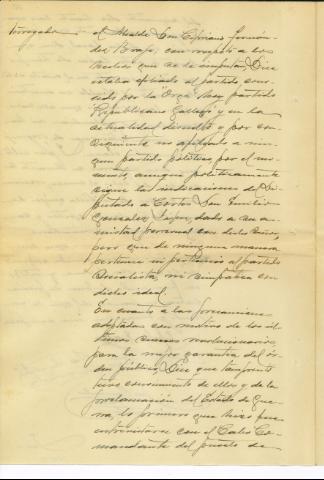 terrogado
el Alcalde Don Cipriano Fernán-
dez Bravo, con respeto a los
hechos que se le imputan, Dice
estaba afiliado al partido cono-
cido por la "Orga" hoy partido
Republicano Gallego y en la
actualidad disuelto y por con-
siguiente no afiliado a nin-
gun partido político por el mo-
mento, aunque políticamente
sigue las indicaciones del Di-
putado a Cortes Don Emilio
Gonzalez Lopez, dado a su a-
mistad personal con dicho
pero que de ninguna manera
pertenece ni perteneció al partido
Socialista, ni simpatiza con
dicho ideal.
En cuanto a las precauciones
adoptadas con motivo de los úl-
timos sucesos revolucionarios
para la mejor garantia del ór-
den público, Dice que tan pronto
tuvo conocimiento de ellos y de la
proclamación del Estado de Gue-
rra, lo primero que hizo fue
entrevistarse con el Cabo Co-
mandante del puesto de